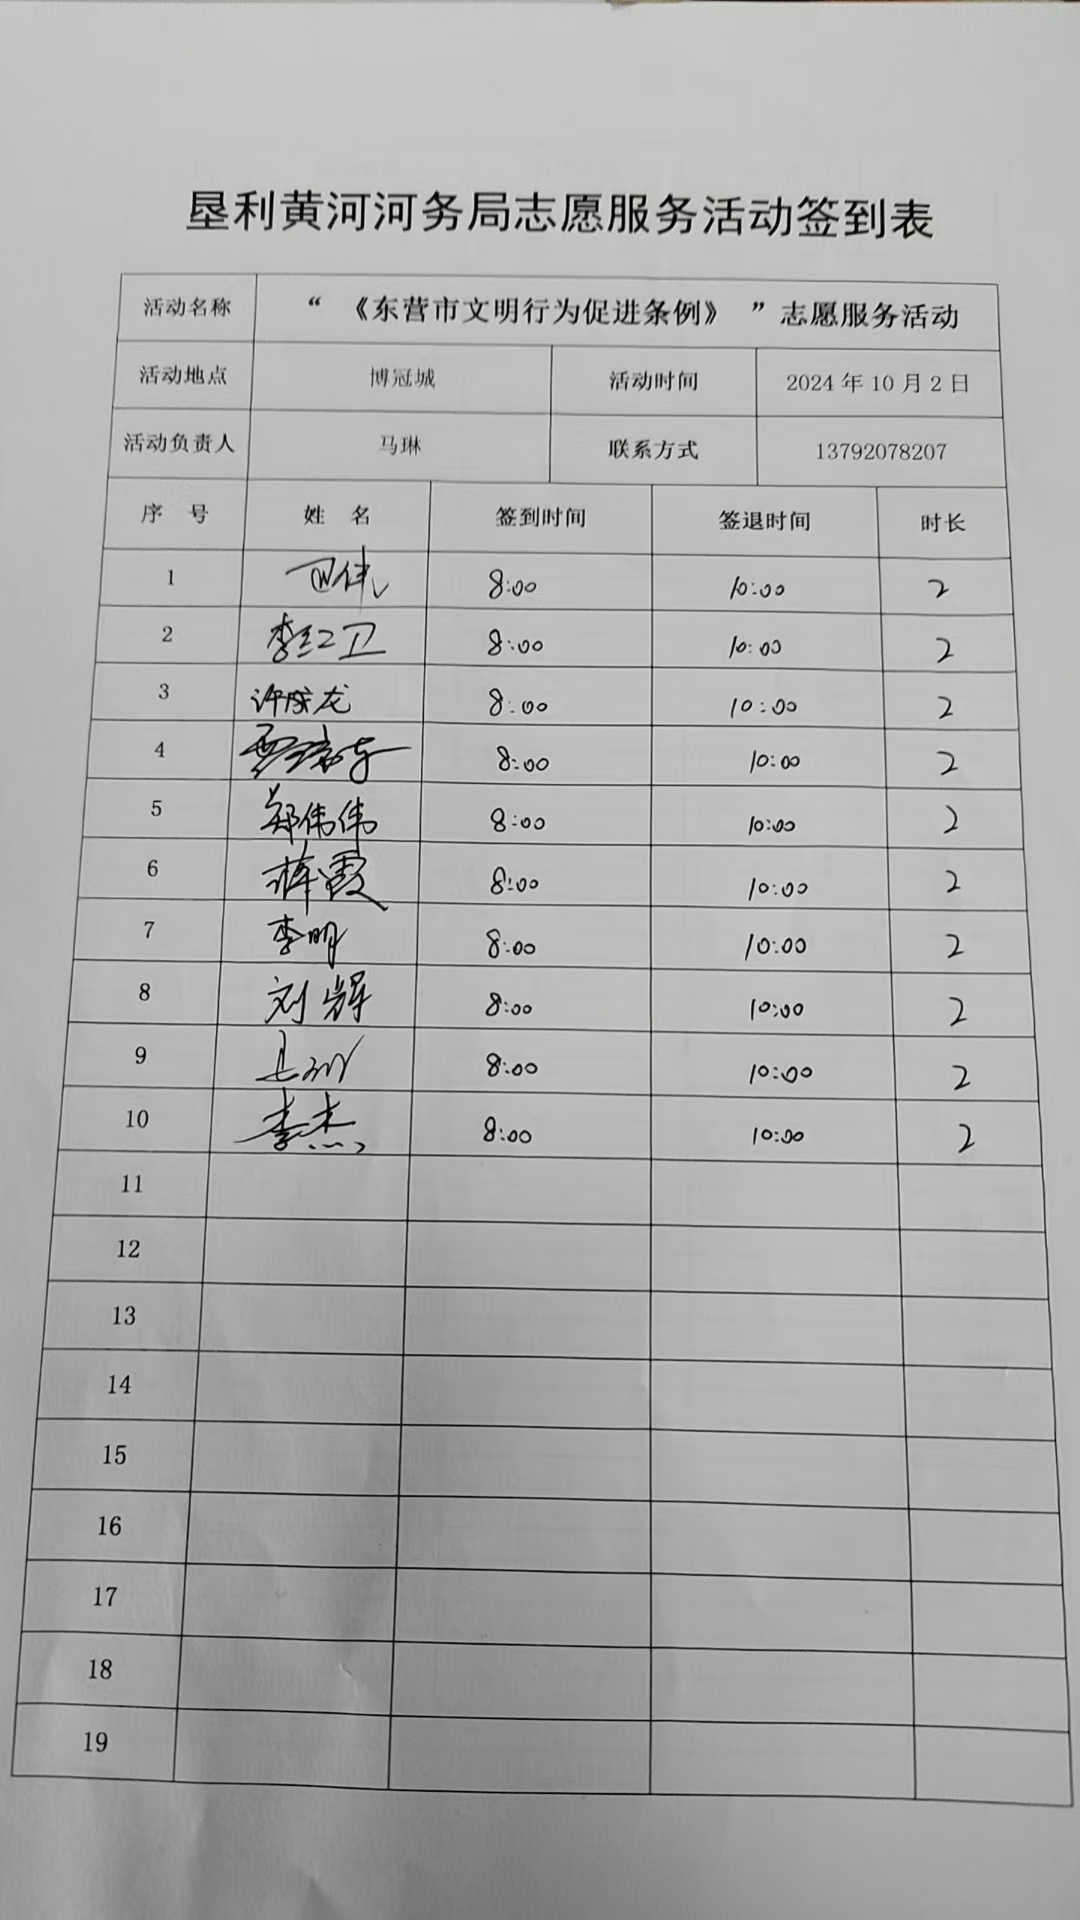 垦利黄河河务局志愿服务活动签到表
活动名称 “ 《东营市文明行为促进条例》 ”志愿服务活动
活动地点 博冠城 活动时间 2024 年 10 月 2 日
活动负责人 马琳 联系方式 13792078207
序 号 姓 名 签到时间 签退时间 时长
1 8:00 10:00 2
2 李红卫 8:00 10:00 2
3 龙 8:00 10:00 2
4 8:00 10:00 2
5 郑伟伟 8:00 10:00 2
6 薛霞 8:00 10:00 2
7 李明 8:00 10:00 2
8 刘辉 8:00 10:00 2
9 8:00 10:00 2
10 李杰 8:00 10:00 2
11
12
13
14
15
16
17
18
19